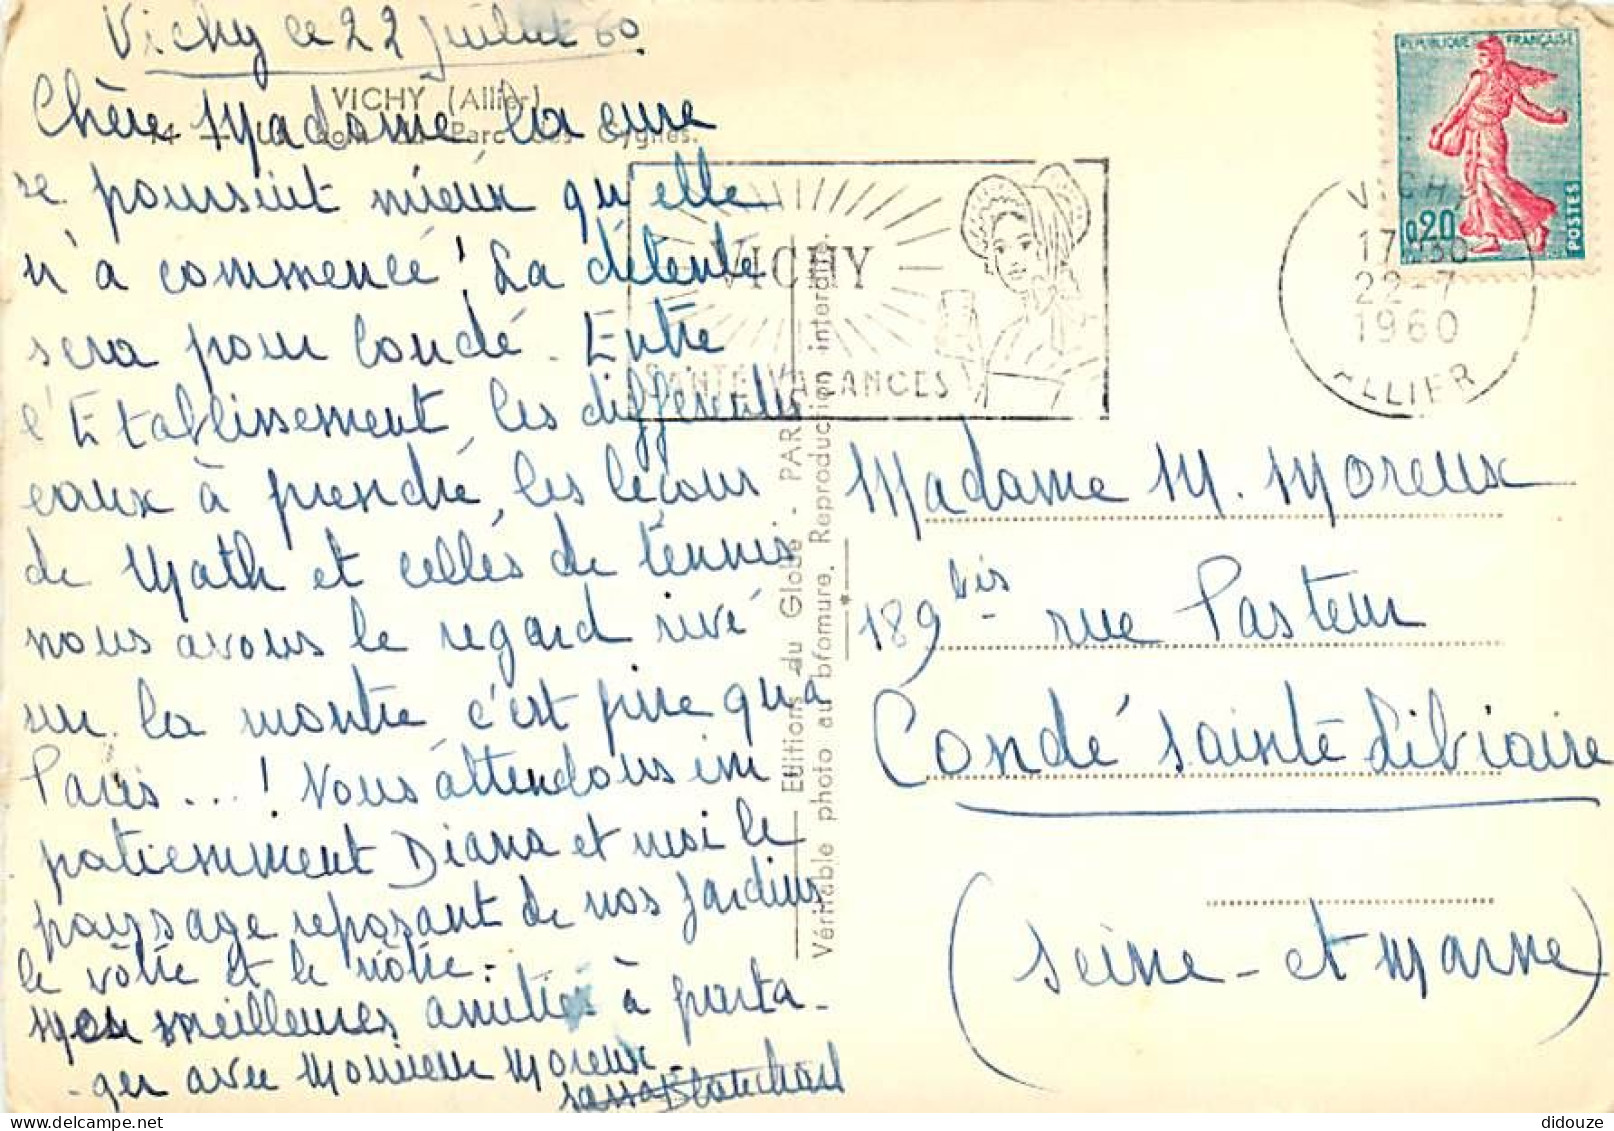 Vichy ce 22 juillet 60
VICHY (Allier)
Chère Madame La cure
se poursuit mieux qu'elle
n'a commencé! La détente
sera pour Condé. Entre
l'Etablissement, les différentes
eaux à prendre, les leçons
de Math et celles de tennis
nous avons le regard rivé
sur la montre c'est pire qu'à
Paris...! Nous attendons im
patiemment Diana et moi le
paysage reposant de nos jardins
le vôtre et le nôtre.
Mes meilleures amitiés à parta-
-ger avec Monsieur Moreux.
Blanchard
Editions du Globe - PARIS
Véritable photo au bromure. Reproduction interdite.
VICHY
SANTÉ VACANCES
REPUBLIQUE FRANÇAISE
0,20
POSTES
VICHY
17H30
22-7
1960
ALLIER
Madame M. Moreux
189 bis rue Pasteur
Condé Sainte Libiaire
(Seine-et Marne)
didouze